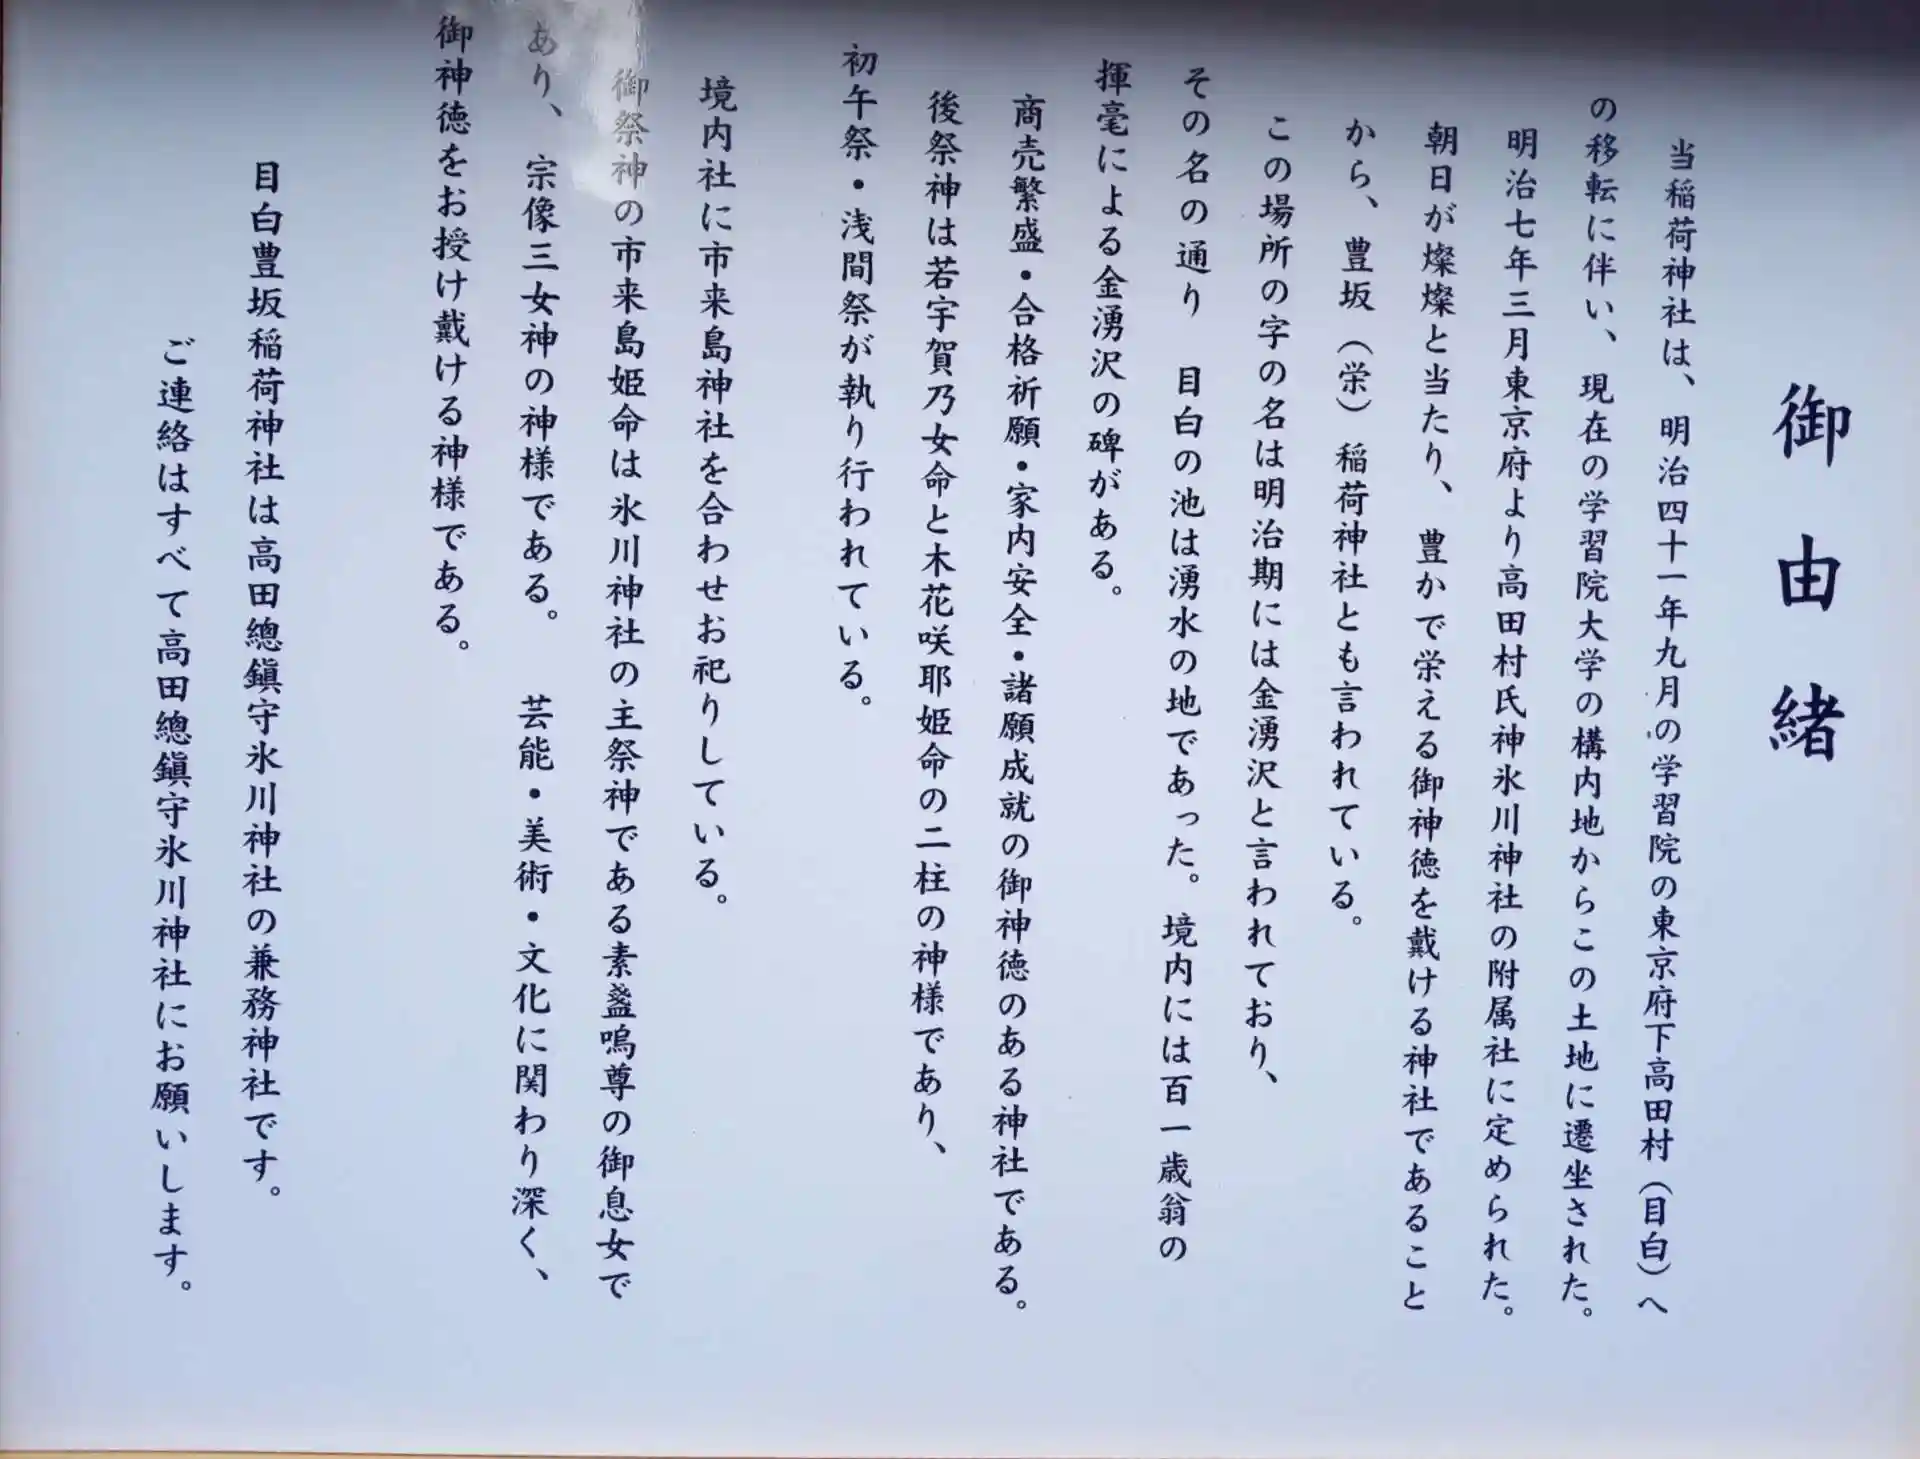 御由緒
当稲荷神社は、明治四十一年九月の学習院の東京府下高田村(目白)へ
の移転に伴い、現在の学習院大学の構内地からこの土地に遷坐された。
明治七年三月東京府より高田村氏神氷川神社の附属社に定められた。
朝日が燦燦と当たり、豊かで栄える御神徳を戴ける神社であること
から、豊坂(栄)稲荷神社とも言われている。
この場所の字の名は明治期には金湧沢と言われており、
その名の通り 目白の池は湧水の地であった。境内には百一歳翁の
揮毫による金湧沢の碑がある。
商売繁盛・合格祈願・家内安全・諸願成就の御神徳のある神社である。
後祭神は若宇賀乃女命と木花咲耶姫命の二柱の神様であり、
初午祭・浅間祭が執り行われている。
境内社に市来島神社を合わせお祀りしている。
御祭神の市来島姫命は氷川神社の主祭神である素盞嗚尊の御息女で
あり、宗像三女神の神様である。 芸能・美術・文化に関わり深く、
御神徳をお授け戴ける神様である。
目白豊坂稲荷神社は高田總鎭守氷川神社の兼務神社です。
ご連絡はすべて高田總鎭守氷川神社にお願いします。